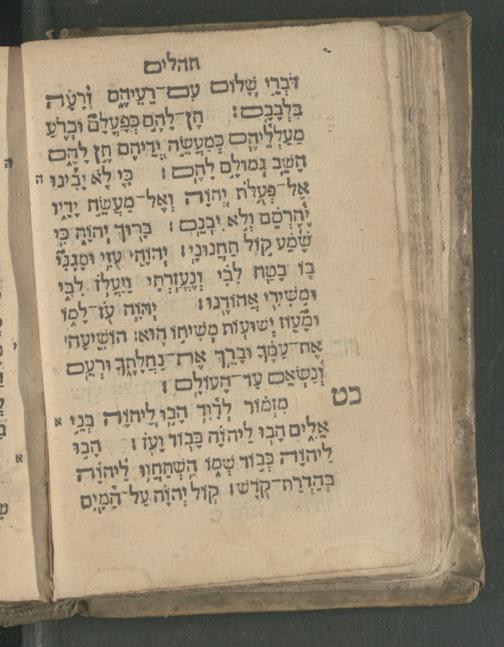 תהלים
דֹּבְרֵי שָׁלוֹם עִם־רֵעֵיהֶם וְרָעָה
בִּלְבָבָם׃ תֶּן־לָהֶם כְּפָעֳלָם וּכְרֹעַ
מַעַלְלֵיהֶם כְּמַעֲשֵׂה יְדֵיהֶם תֵּן לָהֶם
הָשֵׁב גְּמוּלָם לָהֶם׃ כִּי לֹא יָבִינוּ
ה
אֶל־פְּעֻלֹּת יְהוָה וְאֶל־מַעֲשֵׂה יָדָיו
יֶהֶרְסֵם וְלֹא יִבְנֵם׃ בָּרוּךְ יְהוָה כִּי
שָׁמַע קוֹל תַּחֲנוּנָי׃ יְהוָה עֻזִּי וּמָגִנִּי
בּוֹ בָטַח לִבִּי וְנֶעֱזָרְתִּי וַיַּעֲלֹז לִבִּי
וּמִשִּׁירִי אֲהוֹדֶנּוּ׃ יְהוָה עֹז־לָמוֹ
וּמָעוֹז יְשׁוּעוֹת מְשִׁיחוֹ הוּא׃ הוֹשִׁיעָה
אֶת־עַמֶּךָ וּבָרֵךְ אֶת־נַחֲלָתֶךָ וּרְעֵם
וְנַשְּׂאֵם עַד־הָעוֹלָם׃
כט
מִזְמוֹר לְדָוִד הָבוּ לַיהוָה בְּנֵי
א
אֵלִים הָבוּ לַיהוָה כָּבוֹד וָעֹז׃ הָבוּ
לַיהוָה כְּבוֹד שְׁמוֹ הִשְׁתַּחֲווּ לַיהוָה
בְּהַדְרַת־קֹדֶשׁ׃ קוֹל יְהוָה עַל־הַמָּיִם